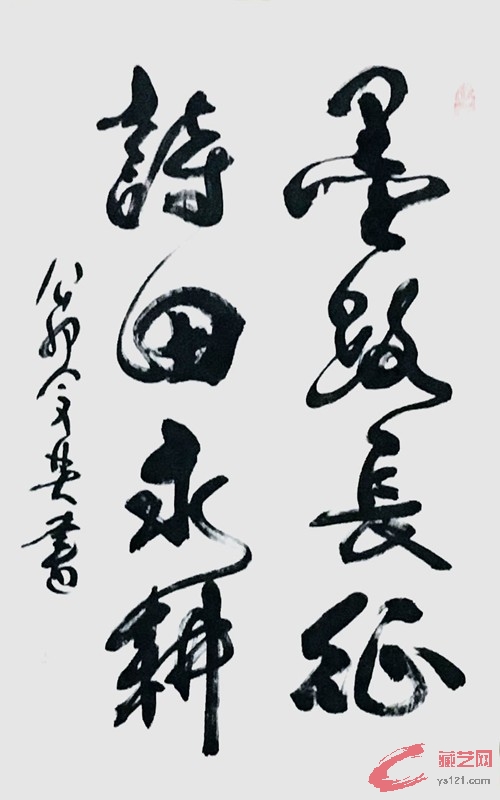 墨路長征
詩田永耕
癸卯文英書
藏艺网
ys121.com